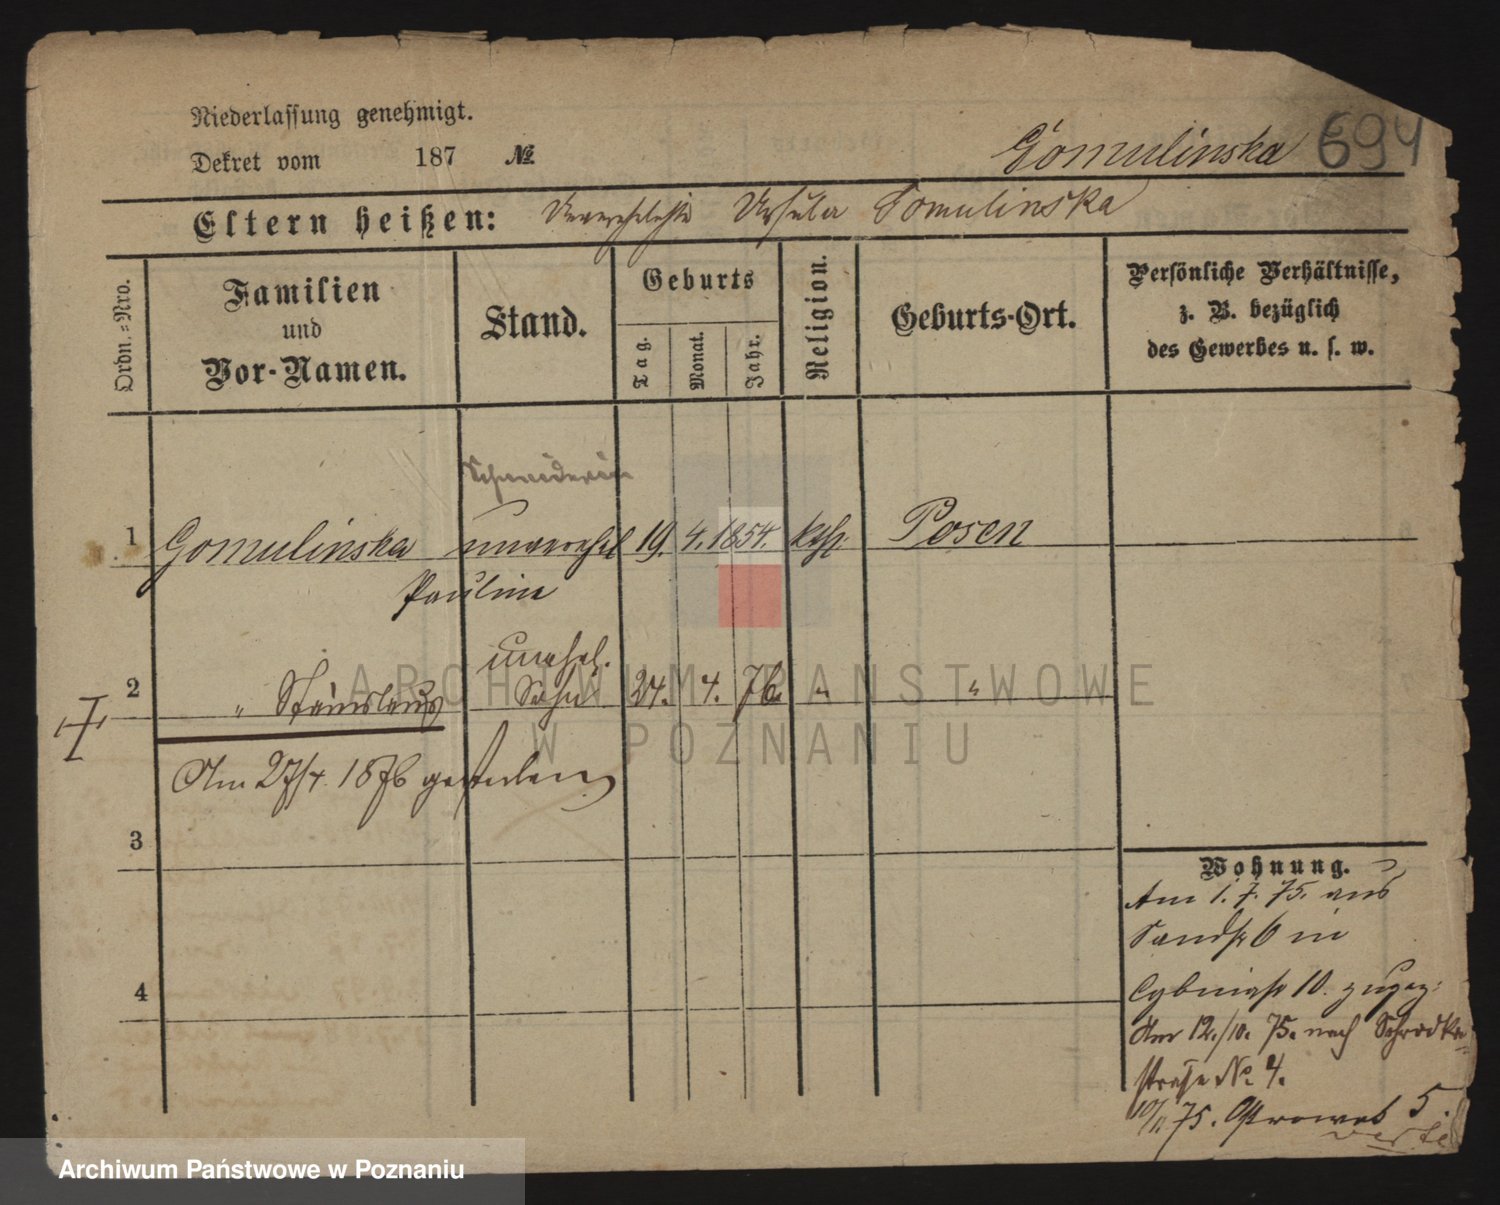 Niederlassung genehmigt.
Dekret vom 187 No
Gomulinska 694
Eltern heißen: Unverehelichte Ursula Gomulinska
Ordn.-Nro.
Familien und Vor-Namen.
Stand.
Geburts
Tag.
Monat.
Jahr.
Religion.
Geburts-Ort.
Persönliche Verhältnisse,
z. B. bezüglich
des Gewerbes u. s. w.
Schneiderin
1 Gomulinska unverehel 19. 4. 1854. kth. Posen
Pauline
unehel.
2 " Stanislaus Sohn 24. 4. 76. " "
Am 27/4. 1876 gestorben
3
4
Wohnung.
Am 1. 7. 75. aus
Sandstr 6 in
Cybinastr 10. zugez:
Am 12./10. 75. nach Schrodka-
straße No. 4.
10/11. 75. Ostrowek 5.
ARCHIWUM PAŃSTWOWE
W POZNANIU
Archiwum Państwowe w Poznaniu